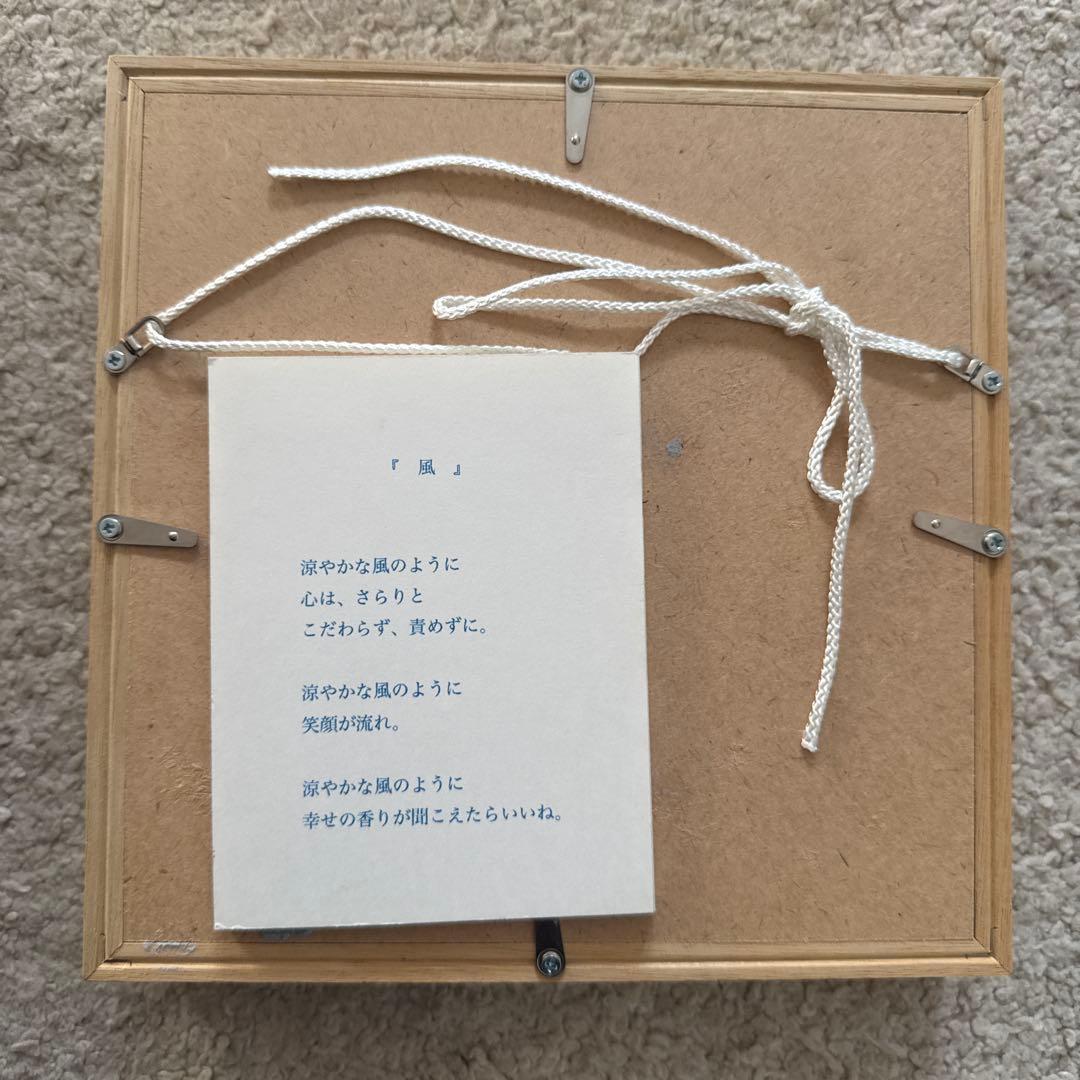 『 風 』
涼やかな風のように
心は、さらりと
こだわらず、責めずに。
涼やかな風のように
笑顔が流れ。
涼やかな風のように
幸せの香りが聞こえたらいいね。